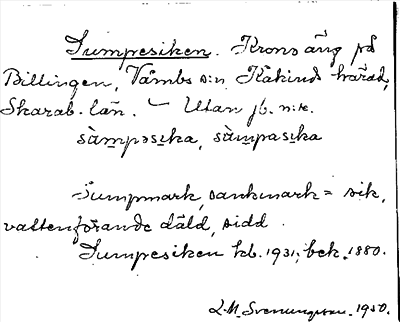 Sumpesiken. Kronoäng på
Billingen, Våmbs s:n Kåkinds härad,
Skarab. län. – Utan jb. n:r.
sàm̲pəsi̲ka, sàm̲pasi̲ka
Sumpmark, sankmark = sik,
vattenförande däld, sidd.
Sumpesiken kb. 1931, bek. 1880.
L.M. Svenungsson. 1950.